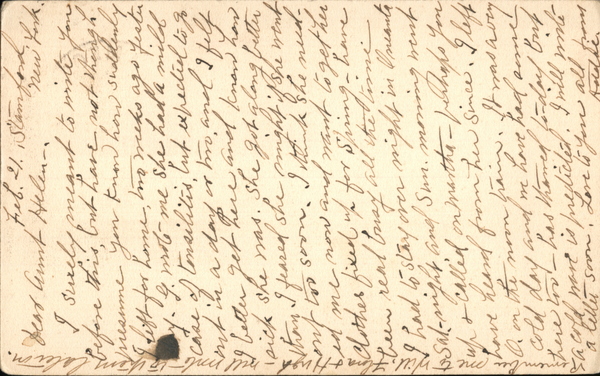 Feb. 21. Stamford,
New York.
Dear Aunt Helen:-
I surely meant to write you
before this, but have not though I
presume you know how suddenly
I left for home, two weeks ago yester
day. G. wrote me she had a mild
case of tonsilitis but expected to go
out in a day or two and I felt
I better get here and know how
sick she was. She got along better
than I feared she might if she went
out too soon. I think she need-
ed me now and want to get her
clothes fixed up for Spring - have
been real busy all the time.
I had to stay over night in Oneonta
Sat. night and Sun. morning went
up & called on Martha - perhaps you
have heard from her since. I left
O. on the noon train. It was a very
cold day and we have had some
here too - has thawed to-day but
a cold wave is predicted. I will write
a letter soon. Love to you all from
Remember me to Will, &